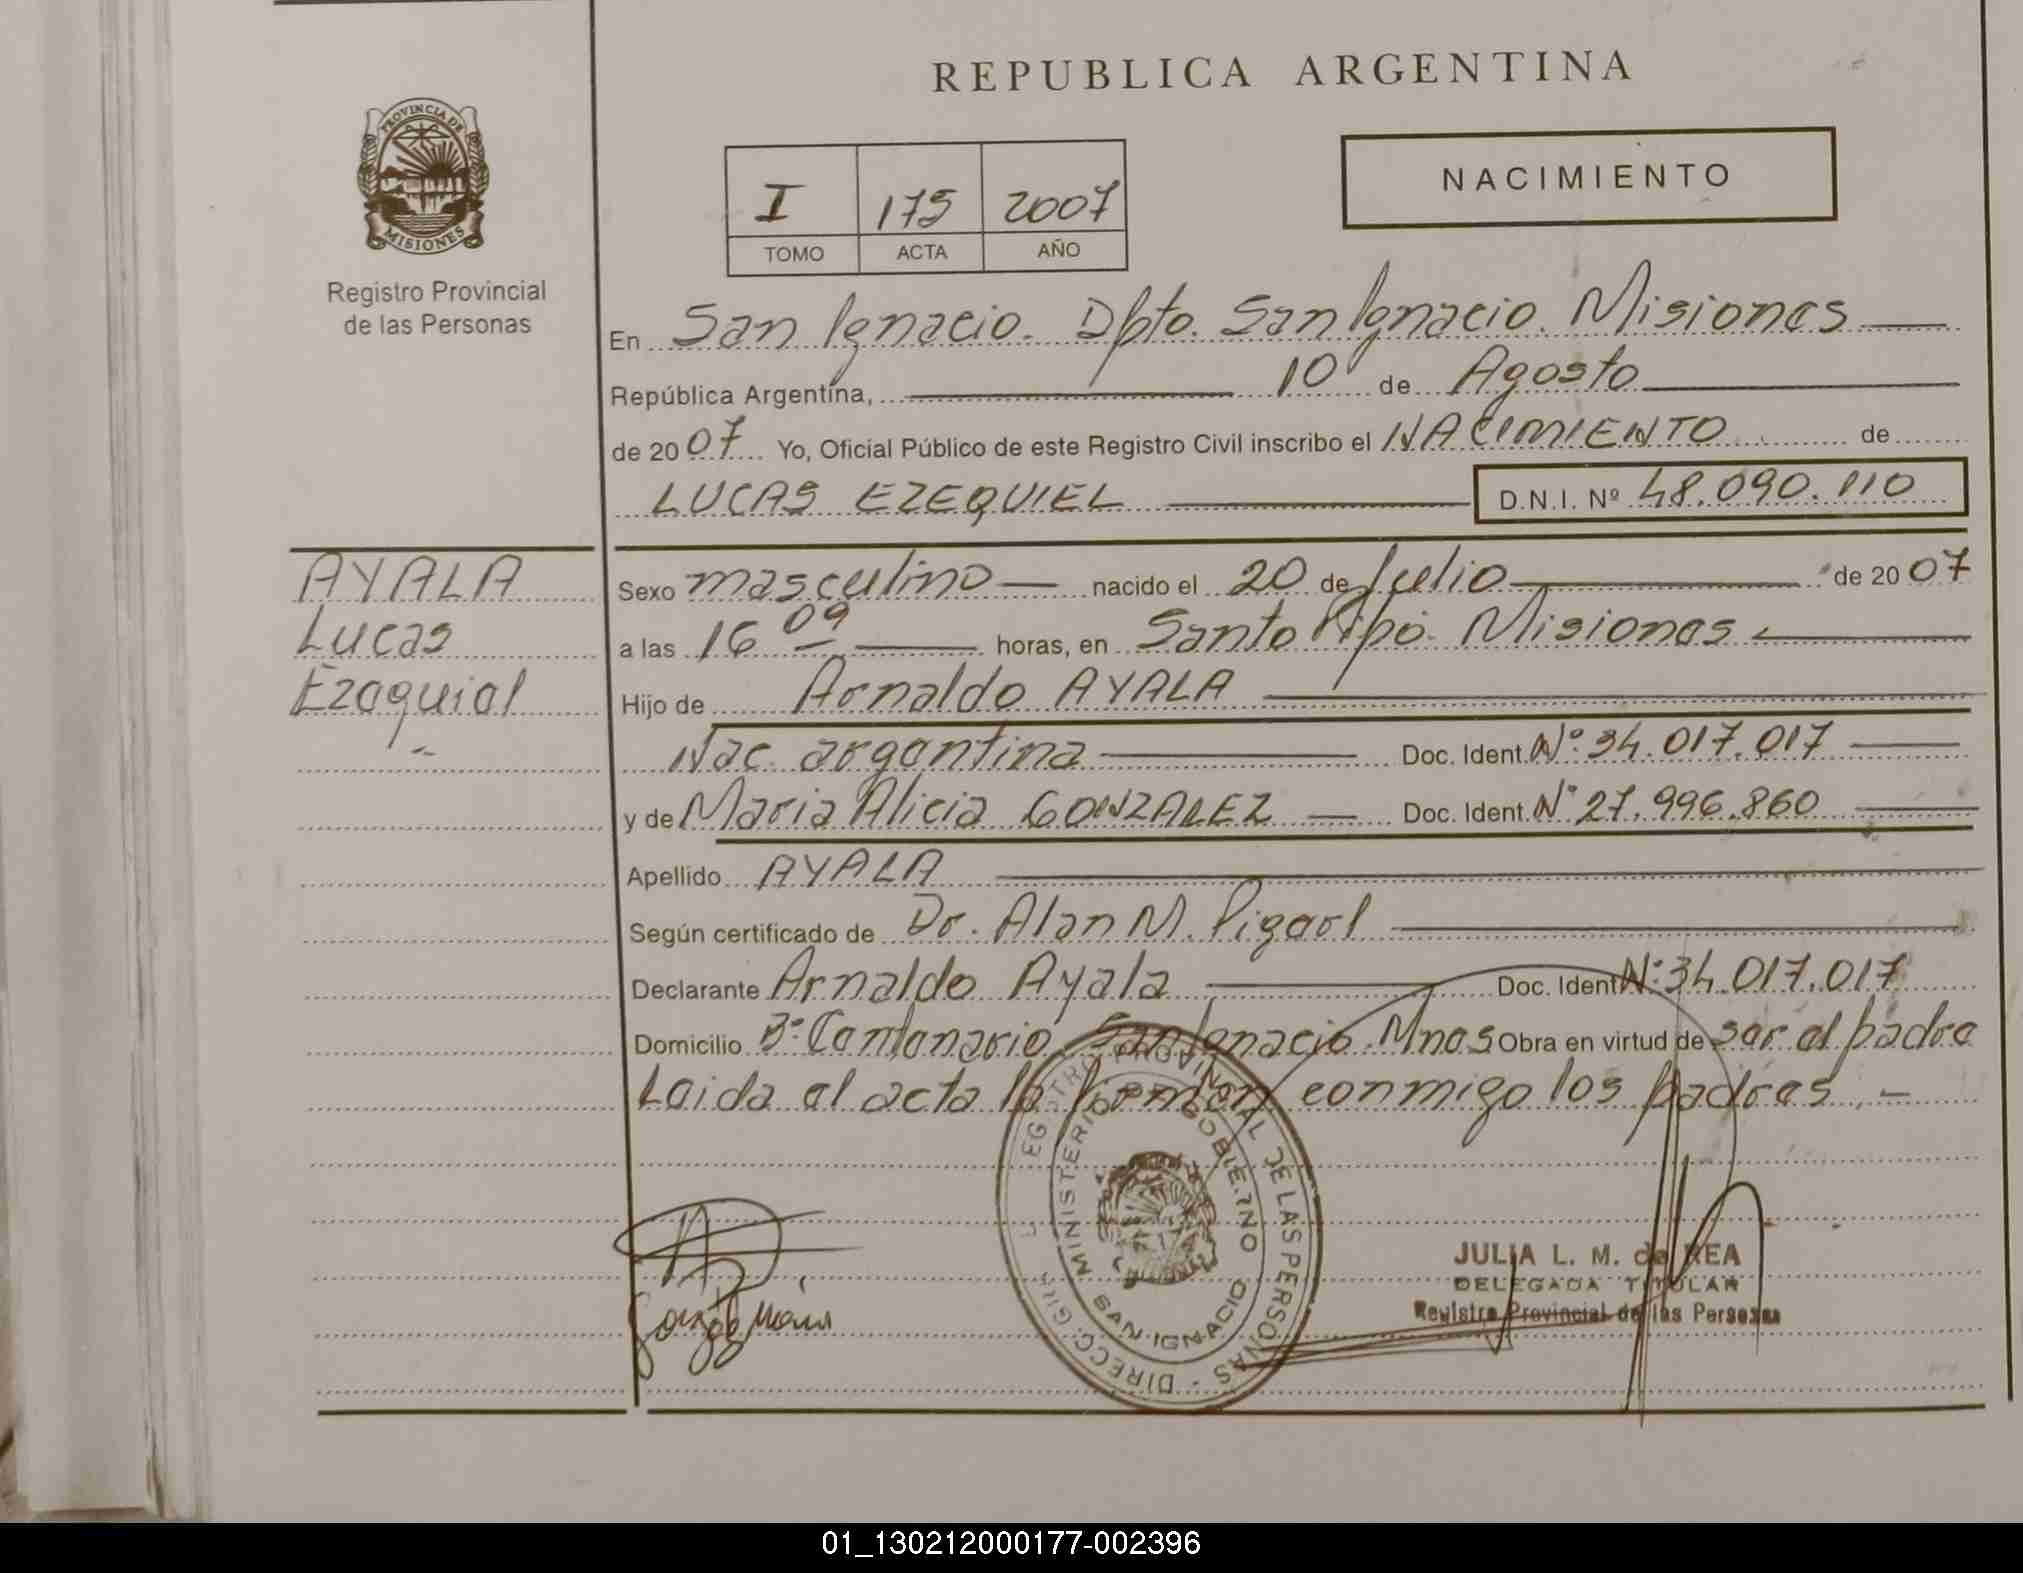 REPUBLICA ARGENTINA
PROVINCIA DE
MISIONES
Registro Provincial
de las Personas
I 175 2007
TOMO ACTA AÑO
NACIMIENTO
En San Ignacio. Dpto. San Ignacio. Misiones
República Argentina, 10 de Agosto
de 2007 Yo, Oficial Público de este Registro Civil inscribo el NACIMIENTO de
LUCAS EZEQUIEL D.N.I. Nº 48.090.110
AYALA
Lucas
Ezequiel
Sexo masculino nacido el 20 de Julio de 2007
a las 16 09 horas, en Santo Pipó. Misiones
Hijo de Arnaldo AYALA
Nac. argentina Doc. Ident. Nº: 34.017.017
y de Maria Alicia GONZALEZ Doc. Ident. Nº 27.996.860
Apellido AYALA
Según certificado de Dr. Alan M.
Declarante Arnaldo Ayala Doc. Ident Nº: 34.017.017
Domicilio Bº Centenario San Ignacio Mnes Obra en virtud de ser el padre
Leida el acta la firman conmigo los padres.-
REGISTRO PROVINCIAL DE LAS PERSONAS - DIRECC. GRAL.
MINISTERIO DE GOBIERNO
SAN IGNACIO
JULIA L. M. de REA
DELEGADA TITULAR
Registro Provincial de las Personas
01_130212000177-002396